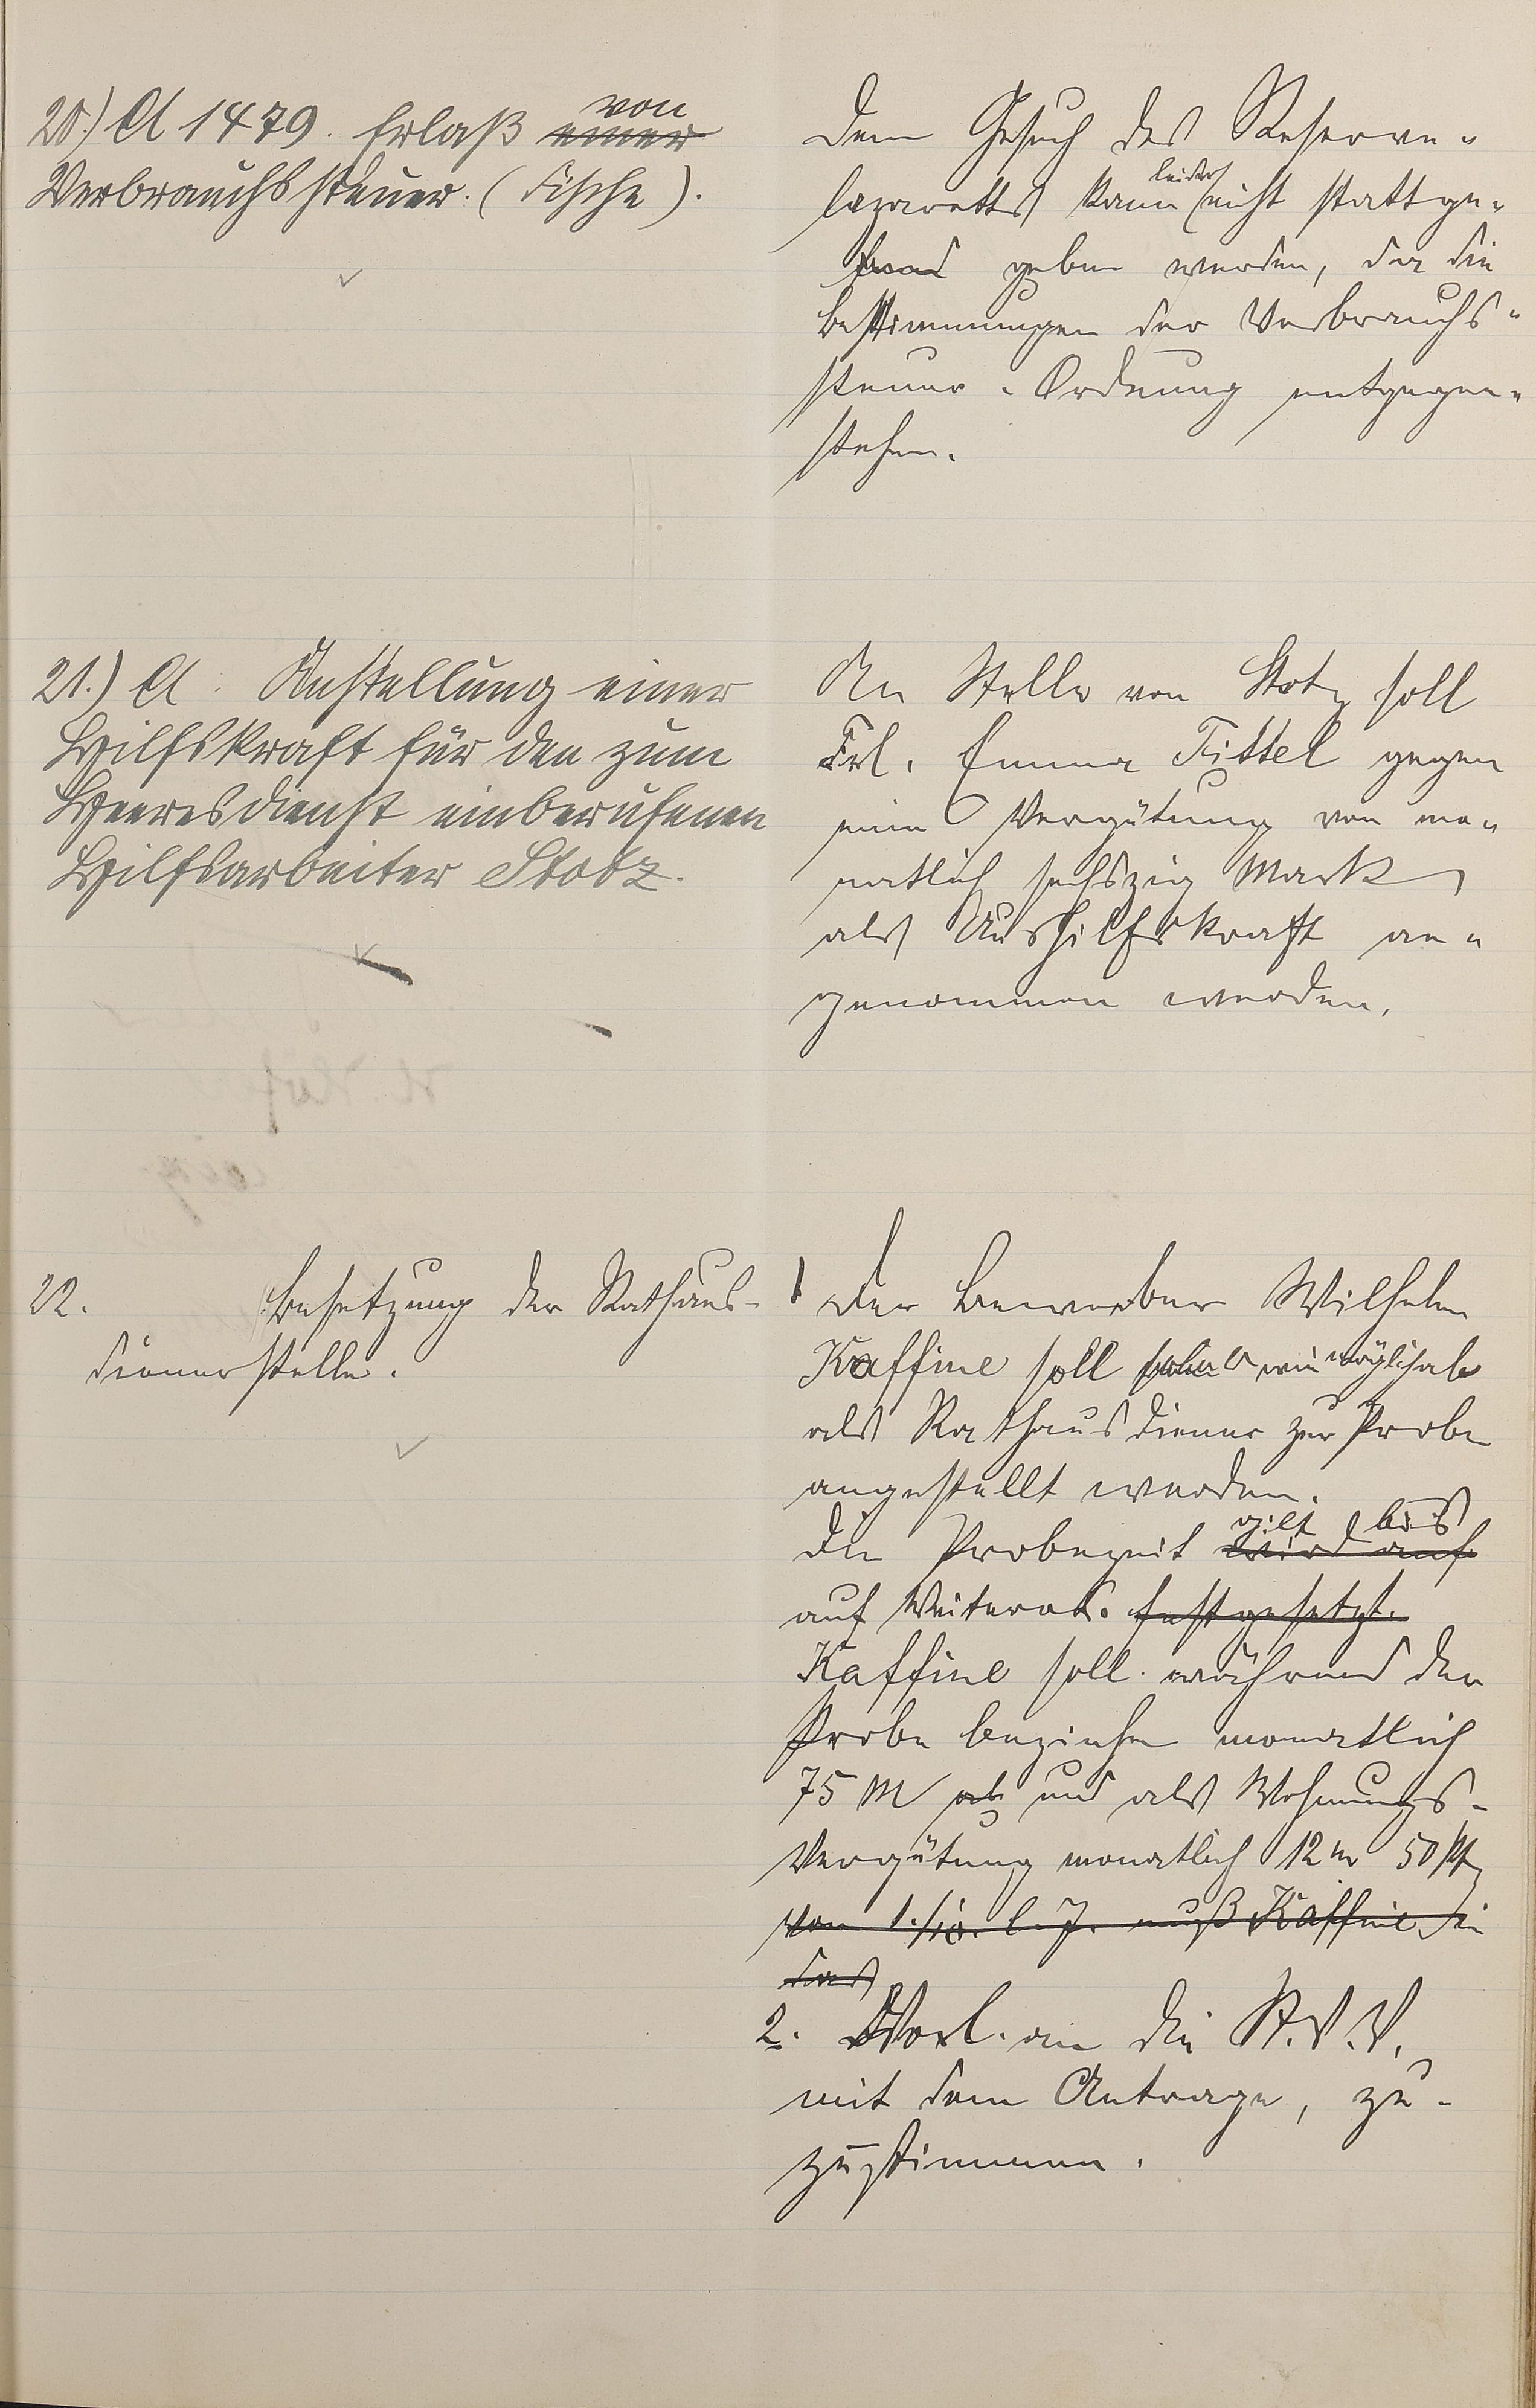 20.) A 1479. Erlaß einer von
Verbrauchssteuer. (Fische).
Dem Gesuch des Reserve-
lazaretts kann leider nicht stattge-
geben werden, da die
Bestimmungen der Verbrauchs-
steuer-Ordnung entgegen-
stehen.
21.) A. Anstellung einer
Hilfskraft für den zum
Heeresdienst einberufenen
Hilfsarbeiter Stotz.
An Stelle von Stotz soll
Frl. Emma Tittel gegen
eine Vergütung von mo-
natlich sechszig Mark
als Aushilfskraft an-
genommen werden.
22. Besetzung der Rathaus-
dienerstelle.
1 Der Bewerber Wilhelm
Kaffine soll sobald wie möglich
als Rathausdiener zur Probe
angestellt werden.
Die Probezeit wird auf gilt bis
auf Weiteres. festgesetzt.
Kaffine soll während der
Probe beziehen monatlich
75 M und als Wohnungs-
Vergütung monatlich 12 M 50 Pf
Vom 1./10. l. J. muß Kaffine in
das
2. Vorl. an die St.V.V.
mit dem Antrage, zu-
zustimmen.